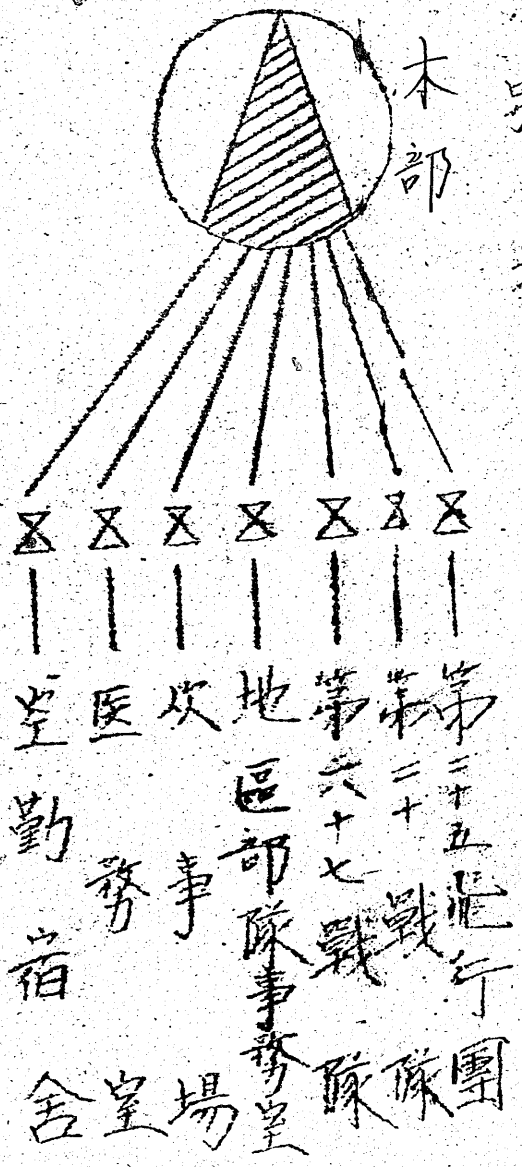 本部
第二十五飛行團
第二十戰隊
第六十七戰隊
地區部隊事務室
炊事場
医務室
空勤宿舍